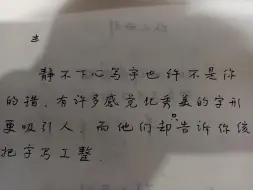 静不下心写字也许不是你
的错，有许多感觉优秀美的字形
更吸引人 而他们却只告诉你该
把字写工整